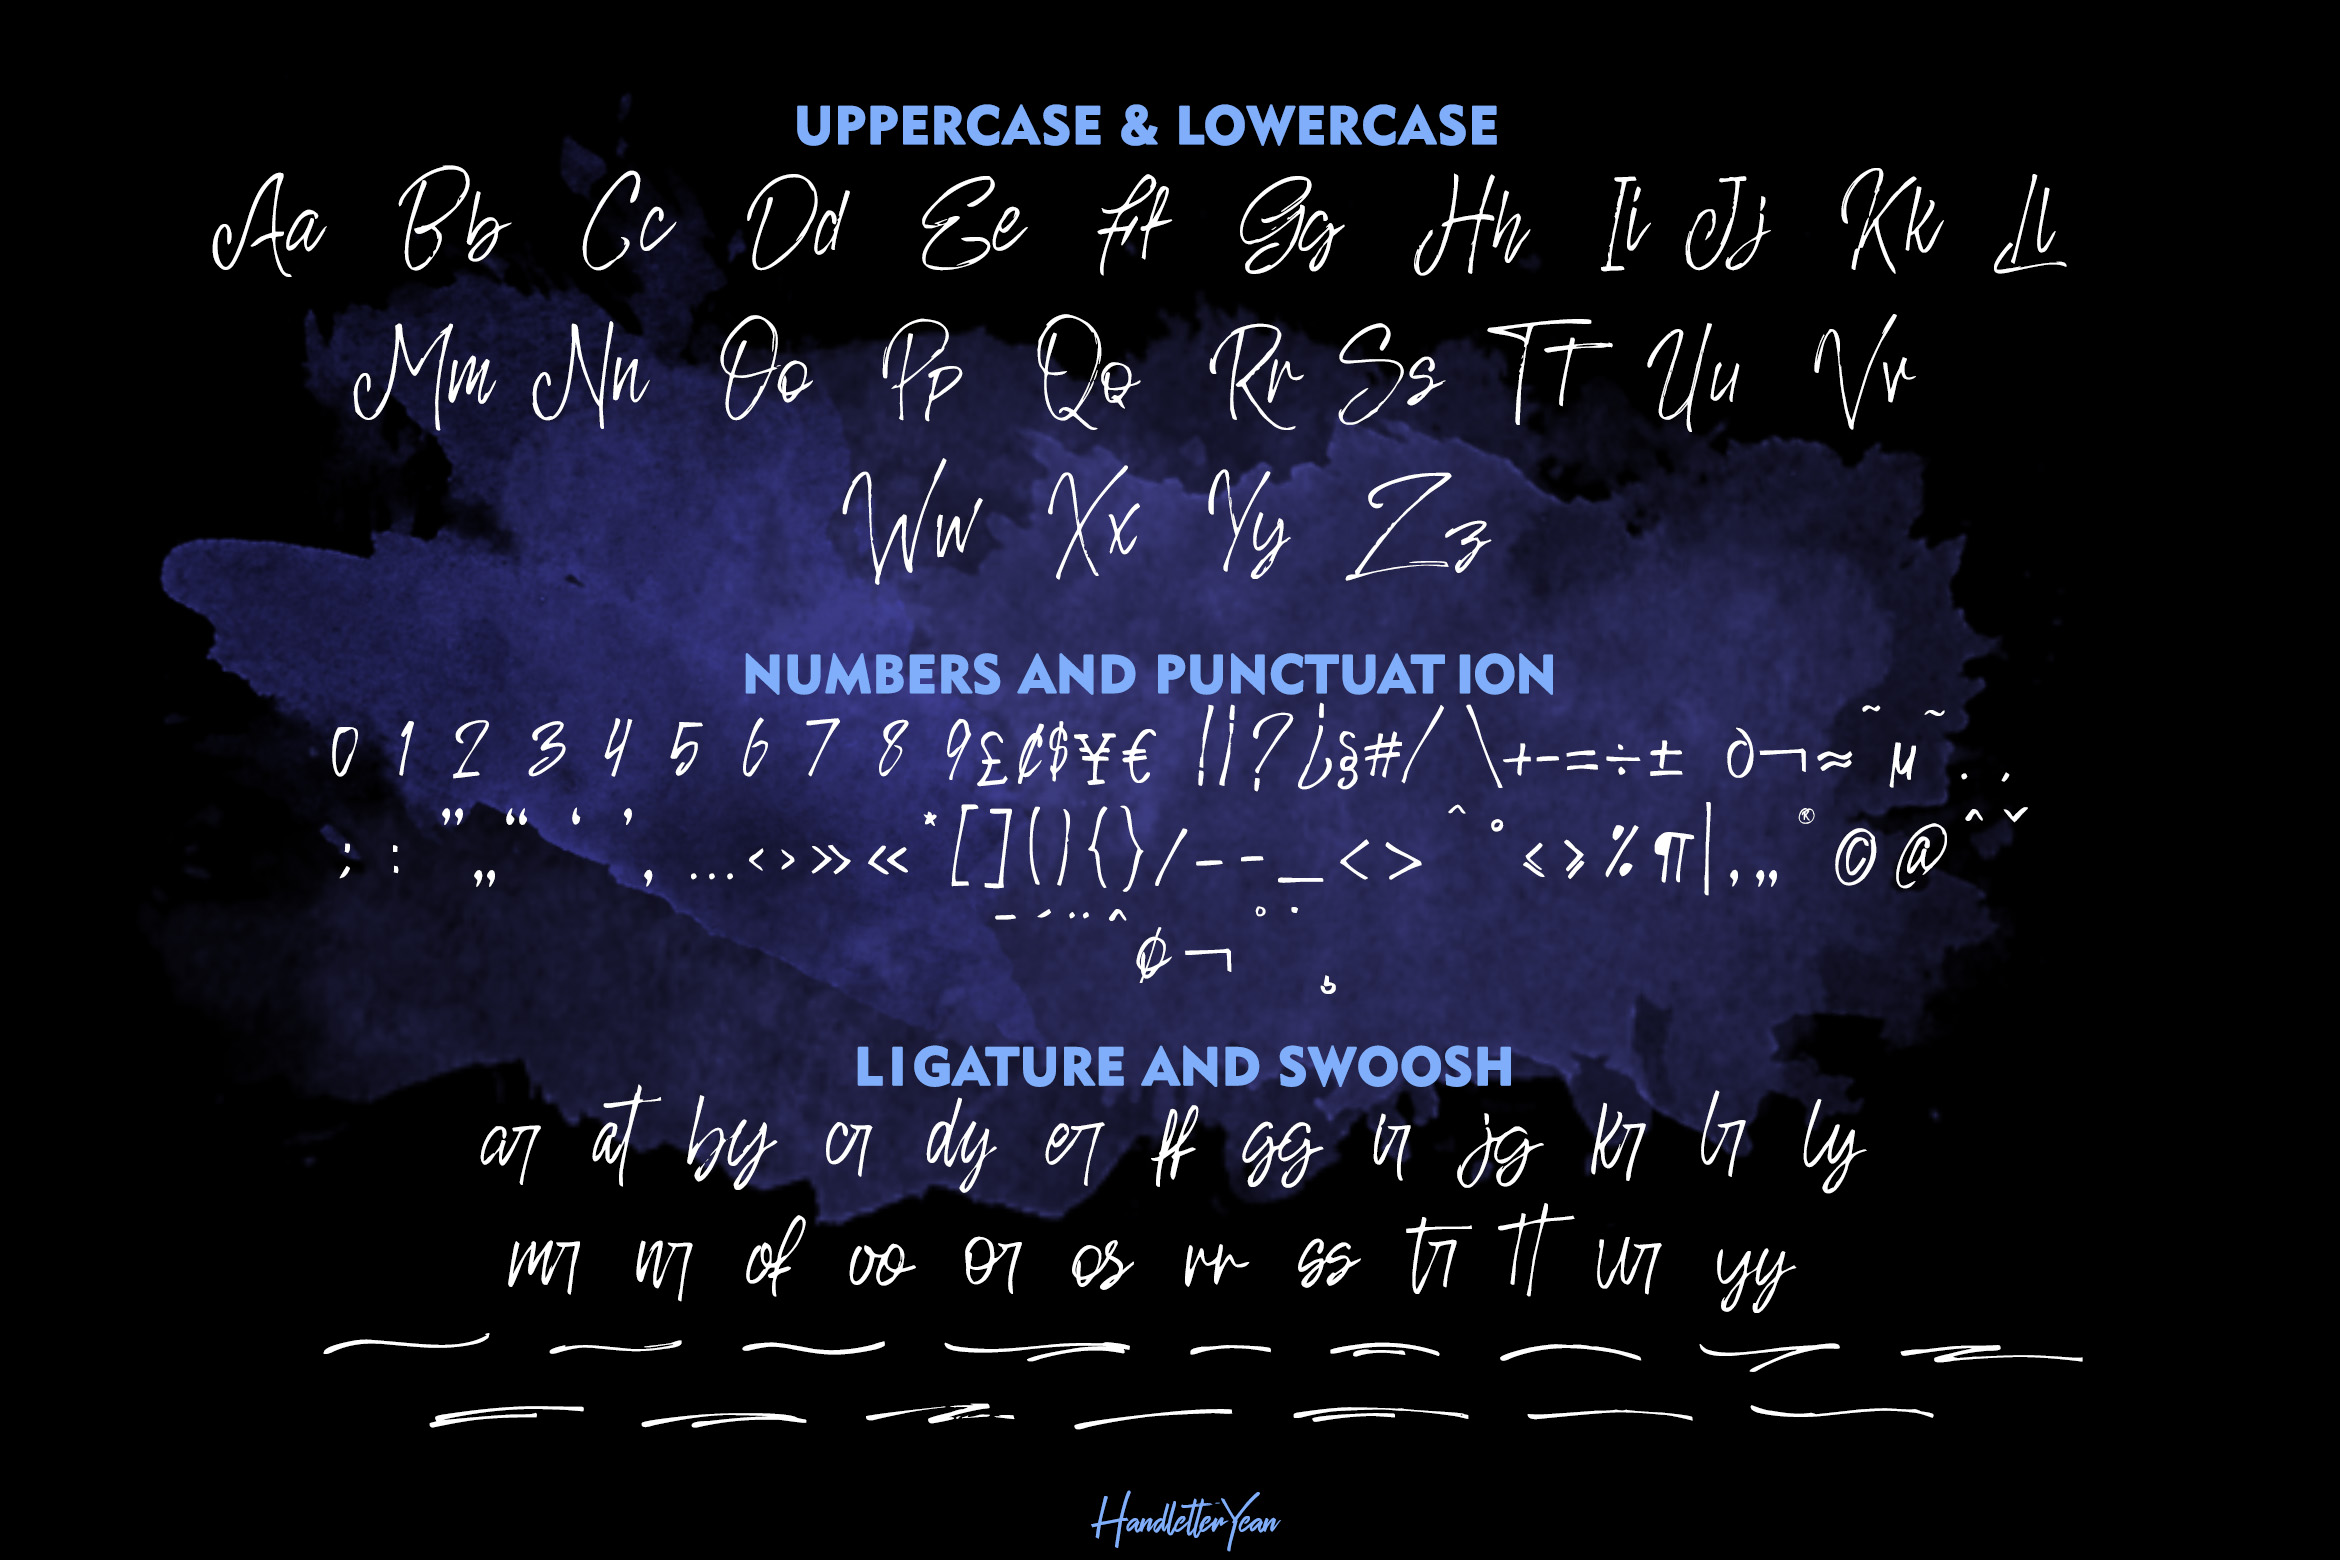 UPPERCASE & LOWERCASE
Aa Bb Cc Dd Ee Ff Gg Hh Ii Jj Kk Ll
Mm Nn Oo Pp Qq Rr Ss Tt Uu Vv
Ww Xx Yy Zz
NUMBERS AND PUNCTUATION
0 1 2 3 4 5 6 7 8 9 £ ¢ $ ¥ € ! ¡ ? ¿ § # / \ + - = ÷ ± ∂ ¬ ≈ ˜ µ ~ . ,
; : ” „ “ ‘ ’ ‚ … ‹ › » « * [ ] ( ) { } / - – _ < > ˆ ° ≤ ≥ % ¶ | ‚ „ ® © @ ˆ ˇ
¯ ´ ¨ ^ ø ¬ ˚ ˙ ¸
LIGATURE AND SWOOSH
ar at by cr dy er ff gg ir jg kr lr ly
mr nr of oo or os rr ss tr tt ur yy
HandletterYean